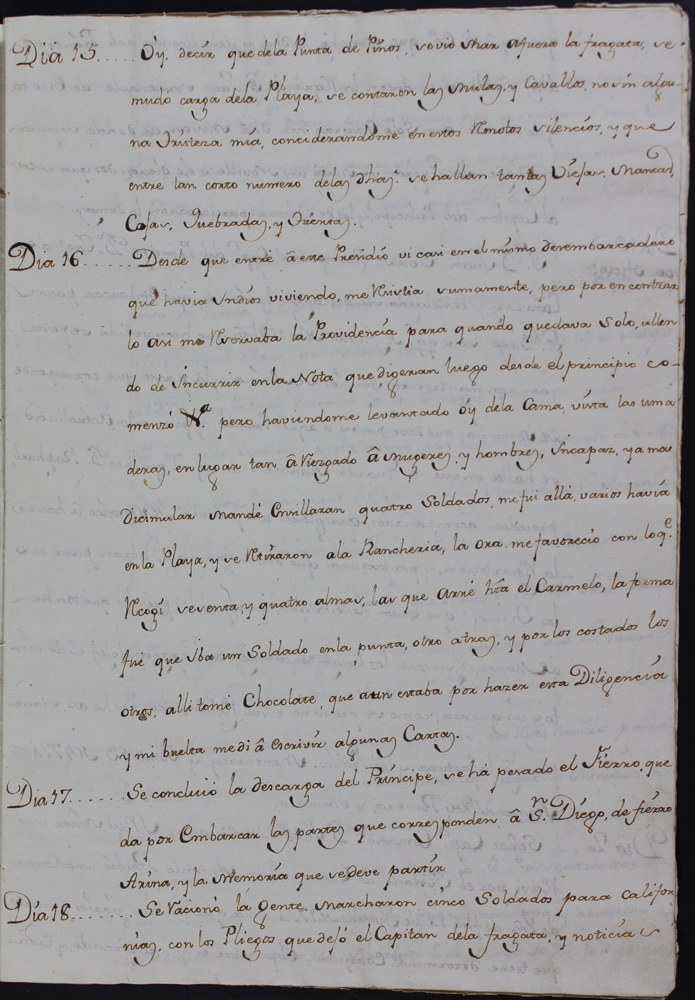 Dia 15..... Oy, decir que dela Punta de Pinos, se vio Mar afuera la fragata, se
mudo carga dela Playa, se contaron las Mulas, y Cavallos, no sin algu-
na Tristeza mia, conciderandome en estos Remotos silencios, y que
entre tan corto numero delas dhas. se hallan tantas Viejas, Mancas,
Cojas, Quebradas, y Tuertas.
Dia 16...... Desde que entré â este Precidio vi casi en el mismo desembarcadero
que havia Indios viviendo, me Resistia sumamente, pero por encontrar
lo asi me Reservaba la Providencia para quando quedava Solo, ullen
do de Incurrir en la Nota que digeran luego desde el principio co-
menzó pero haviendome levantado Oy dela Cama, vista las uma
deras, en lugar tan â Riezgado â Mugeres, y hombres, Incapaz, ya mas
Dicimular Mandé Ensillaran quatro Soldados, me fui allá, varios havia
en la Playa, y se Retiraron a la Rancheria, la ora me favoreció con loq.e
Recogi sesenta, y quatro almas, las que Arrié hta el Carmelo, la forma
fue que Iba un Soldado en la punta, otro atras, y por los costados los
otros, alli tomé Chocolate, que aun estaba por hazer esta Diligencia
y mi buelta me di â Escrivir algunas Cartas.
Dia 17...... Se concluió la descarga del Principe, se ha pesado el Fierro, que
da por Embarcar las partes que corresponden â Sn. Diego, de fierro
Arina, y la Memoria que se deve partir
Dia 18....... Se Racionó la gente, Marcharon cinco Soldados para Califor
nias, con los Pliegos que dejó el Capitan dela fragata, y noticias